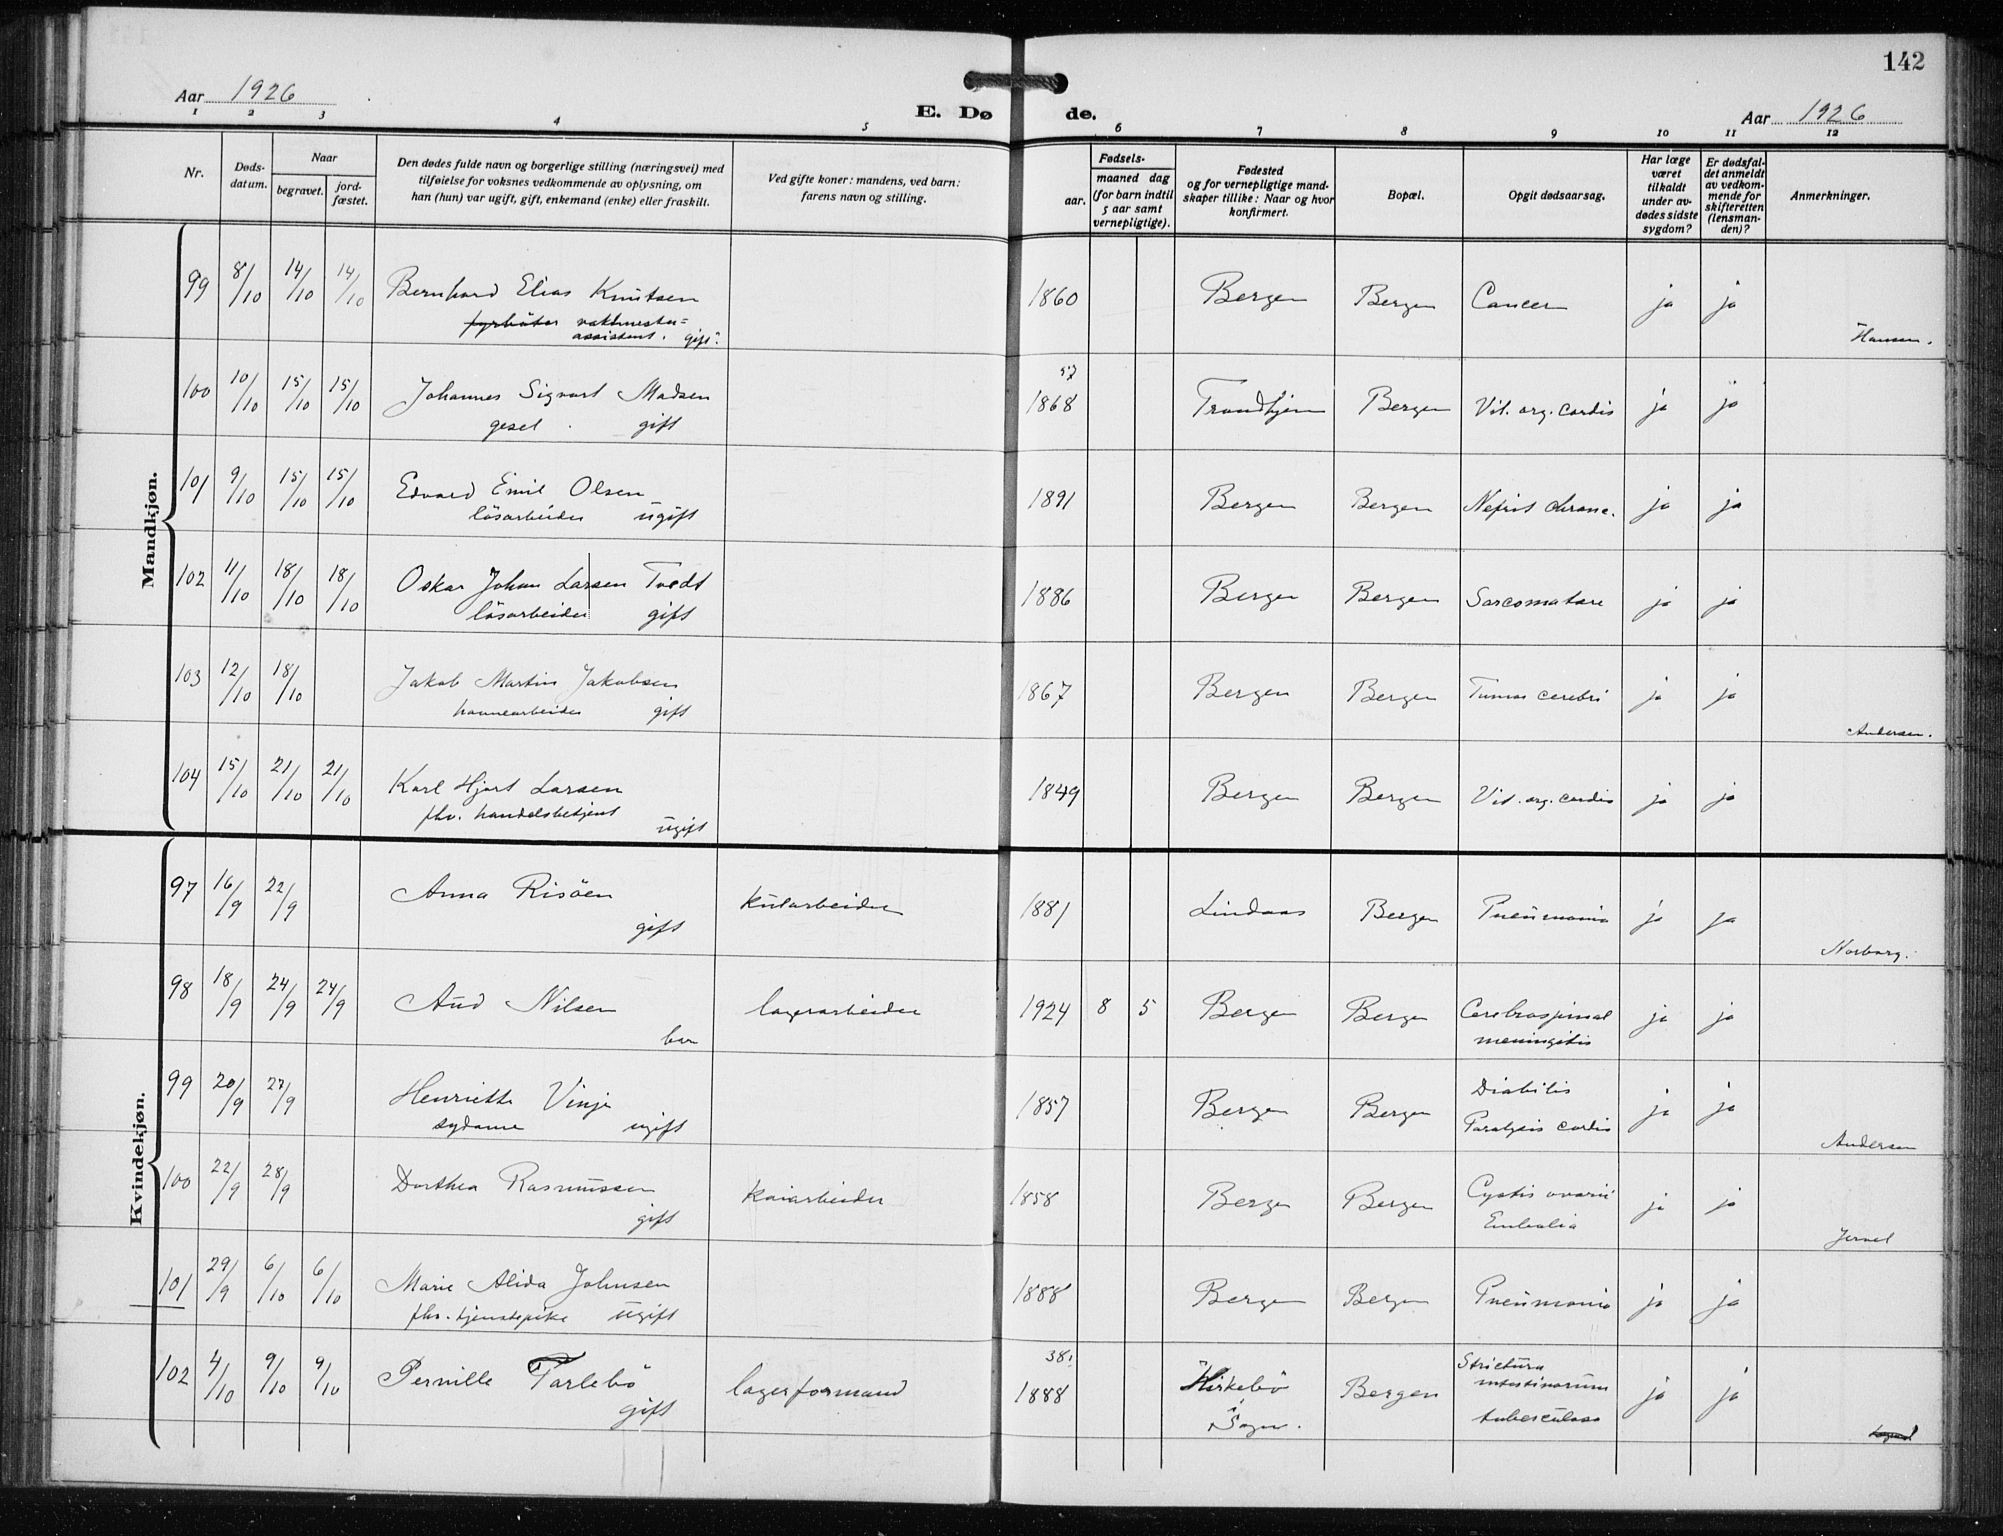 142
Aar 1926
E. Dø de.
Aar 1926
1 2 3 4 5 6 7 8 9 10 11 12
Nr.
Døds-
datum.
Naar
begravet.
jord-
fæstet.
Den dødes fulde navn og borgerlige stilling (næringsvei) med
tilføielse for voksnes vedkommende av oplysning, om
han (hun) var ugift, gift, enkemand (enke) eller fraskilt.
Ved gifte koner: mandens, ved barn:
farens navn og stilling.
Fødsels-
aar.
maaned dag
(for barn indtil
5 aar samt
vernepligtige).
Fødested
og for vernepligtige mand-
skaper tillike: Naar og hvor
konfirmert.
Bopæl.
Opgit dødsaarsag.
Har læge
været
tilkaldt
under av-
dødes sidste
sygdom?
Er dødsfal-
det anmeldt
av vedkom-
mende for
skifteretten
(lensman-
den)?
Anmerkninger.
Mandkjøn.
99 8/10 14/10 14/10 Bernhard Elias Knutsen 1860 Bergen Bergen Cancer ja ja
fyrbøter vaktmester=
assistent. gift.
Hansen.
57
100 10/10 15/10 15/10 Johannes Sigvart Madsen 1868 Trondhjem Bergen Vit. org. cordis ja ja
gesel gift
101 9/10 15/10 15/10 Edvard Emil Olsen 1891 Bergen Bergen Nefrit chronc. ja ja
løsarbeider ugift
102 11/10 18/10 18/10 Oskar Johan Larsen Tvedt 1886 Bergen Bergen Sarcomatose ja ja
løsarbeider gift
103 12/10 18/10 Jakob Martin Jakobsen 1867 Bergen Bergen Tumor cerebri ja ja
havnearbeider gift
Andersen.
104 15/10 21/10 21/10 Karl Hjort Larsen 1849 Bergen Bergen Vit. org. cordis ja ja
fhv. handelsbetjent
ugift
Kvindekjøn.
97 16/9 22/9 Anna Risøen kularbeider 1881 Lindaas Bergen Pneumonia ja ja
gift
Norborg.
98 18/9 24/9 24/9 Aud Nilsen lagerarbeider 1924 8 5 Bergen Bergen Cerebrospinal ja ja
barn meningitis
99 20/9 27/9 Henriette Vinje 1857 Bergen Bergen Diabetis ja ja
sydame ugift Paralysis cordis
Andersen
100 22/9 28/9 Dorthea Rasmussen kaiarbeider 1858 Bergen Bergen Cystis ovarii ja ja
gift Embolia
101 29/9 6/10 6/10 Marie Alida Johnsen 1888 Bergen Bergen Pneumonia ja ja
fhv. tjenestepike ugift
38.
102 4/10 9/10 9/10 Pernille Tarlebø lagerformand 1888 Kirkebø Bergen Strictura ja ja
gift i Sogn. intestinorum
tuberculosa